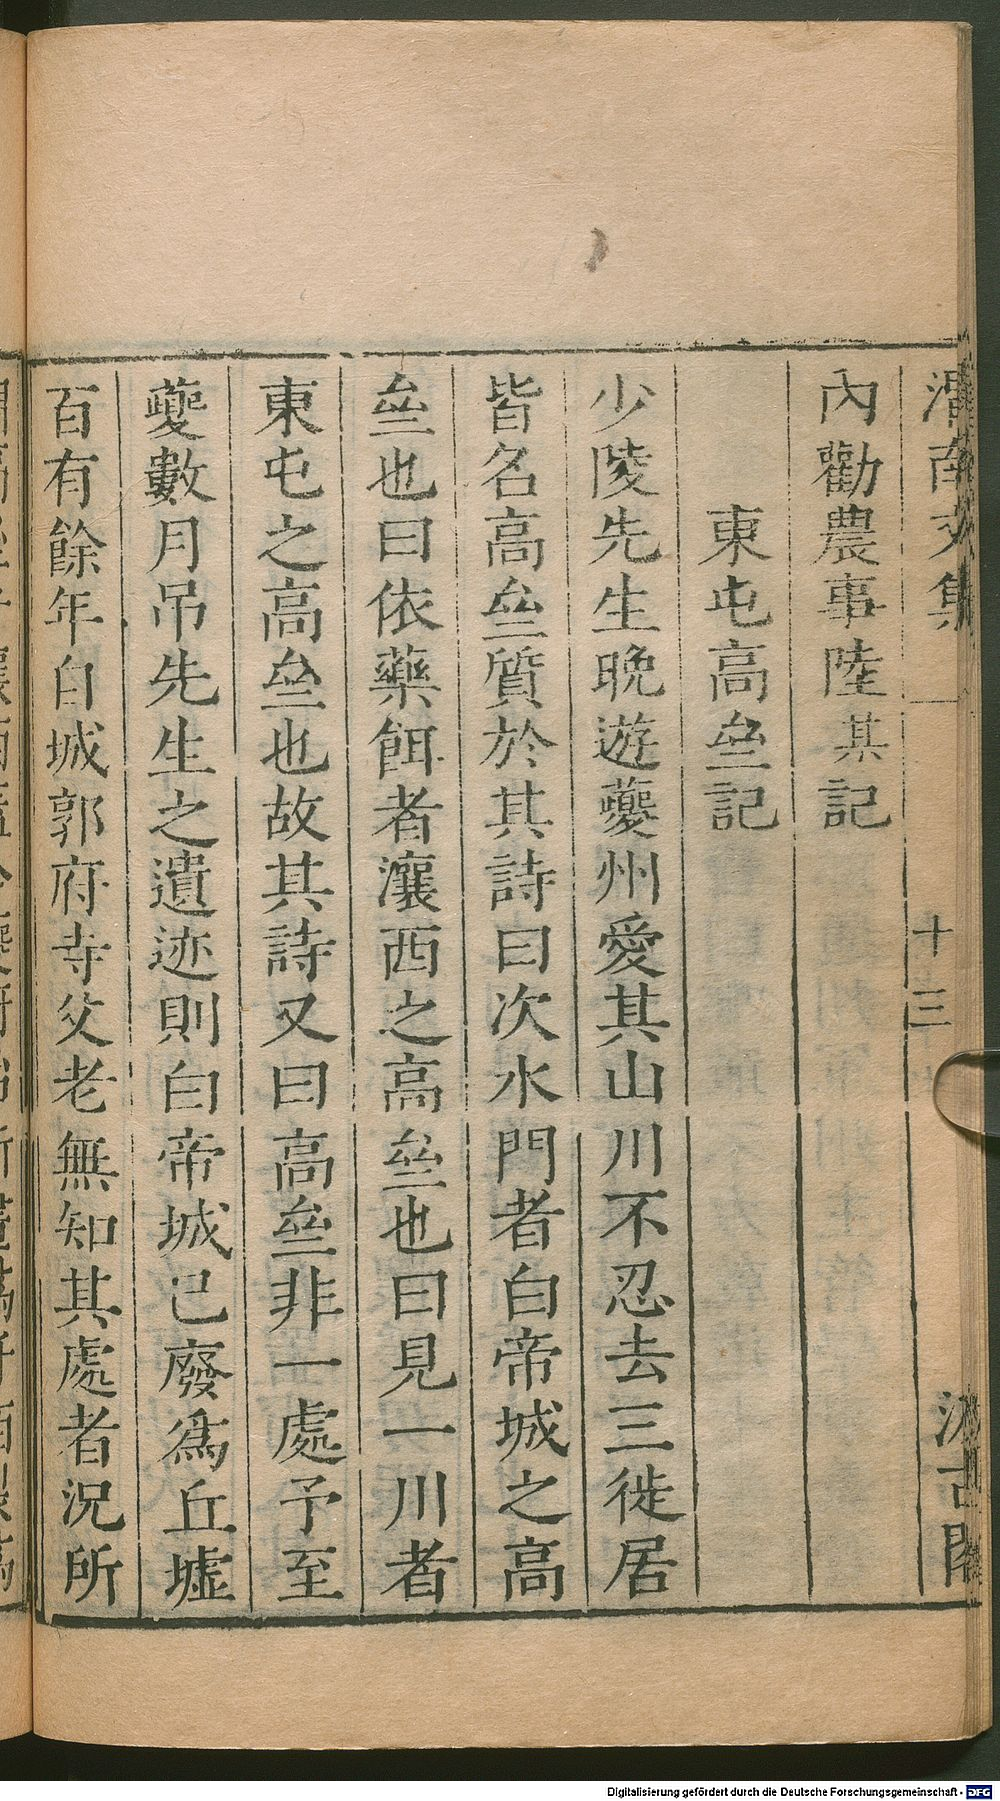 渭南文集 十三 汲古閣
內勸農事陸某記
東屯高㘴記
少陵先生晚遊夔州愛其山川不忍去三徙居
皆名高㘴質於其詩曰次水門者白帝城之高
㘴也曰依藥餌者瀼西之高㘴也曰見一川者
東屯之高㘴也故其詩又曰高㘴非一處予至
夔數月吊先生之遺迹則白帝城已廢為丘墟
百有餘年自城郭府寺父老無知其處者況所
Digitalisierung gefördert durch die Deutsche Forschungsgemeinschaft - DFG